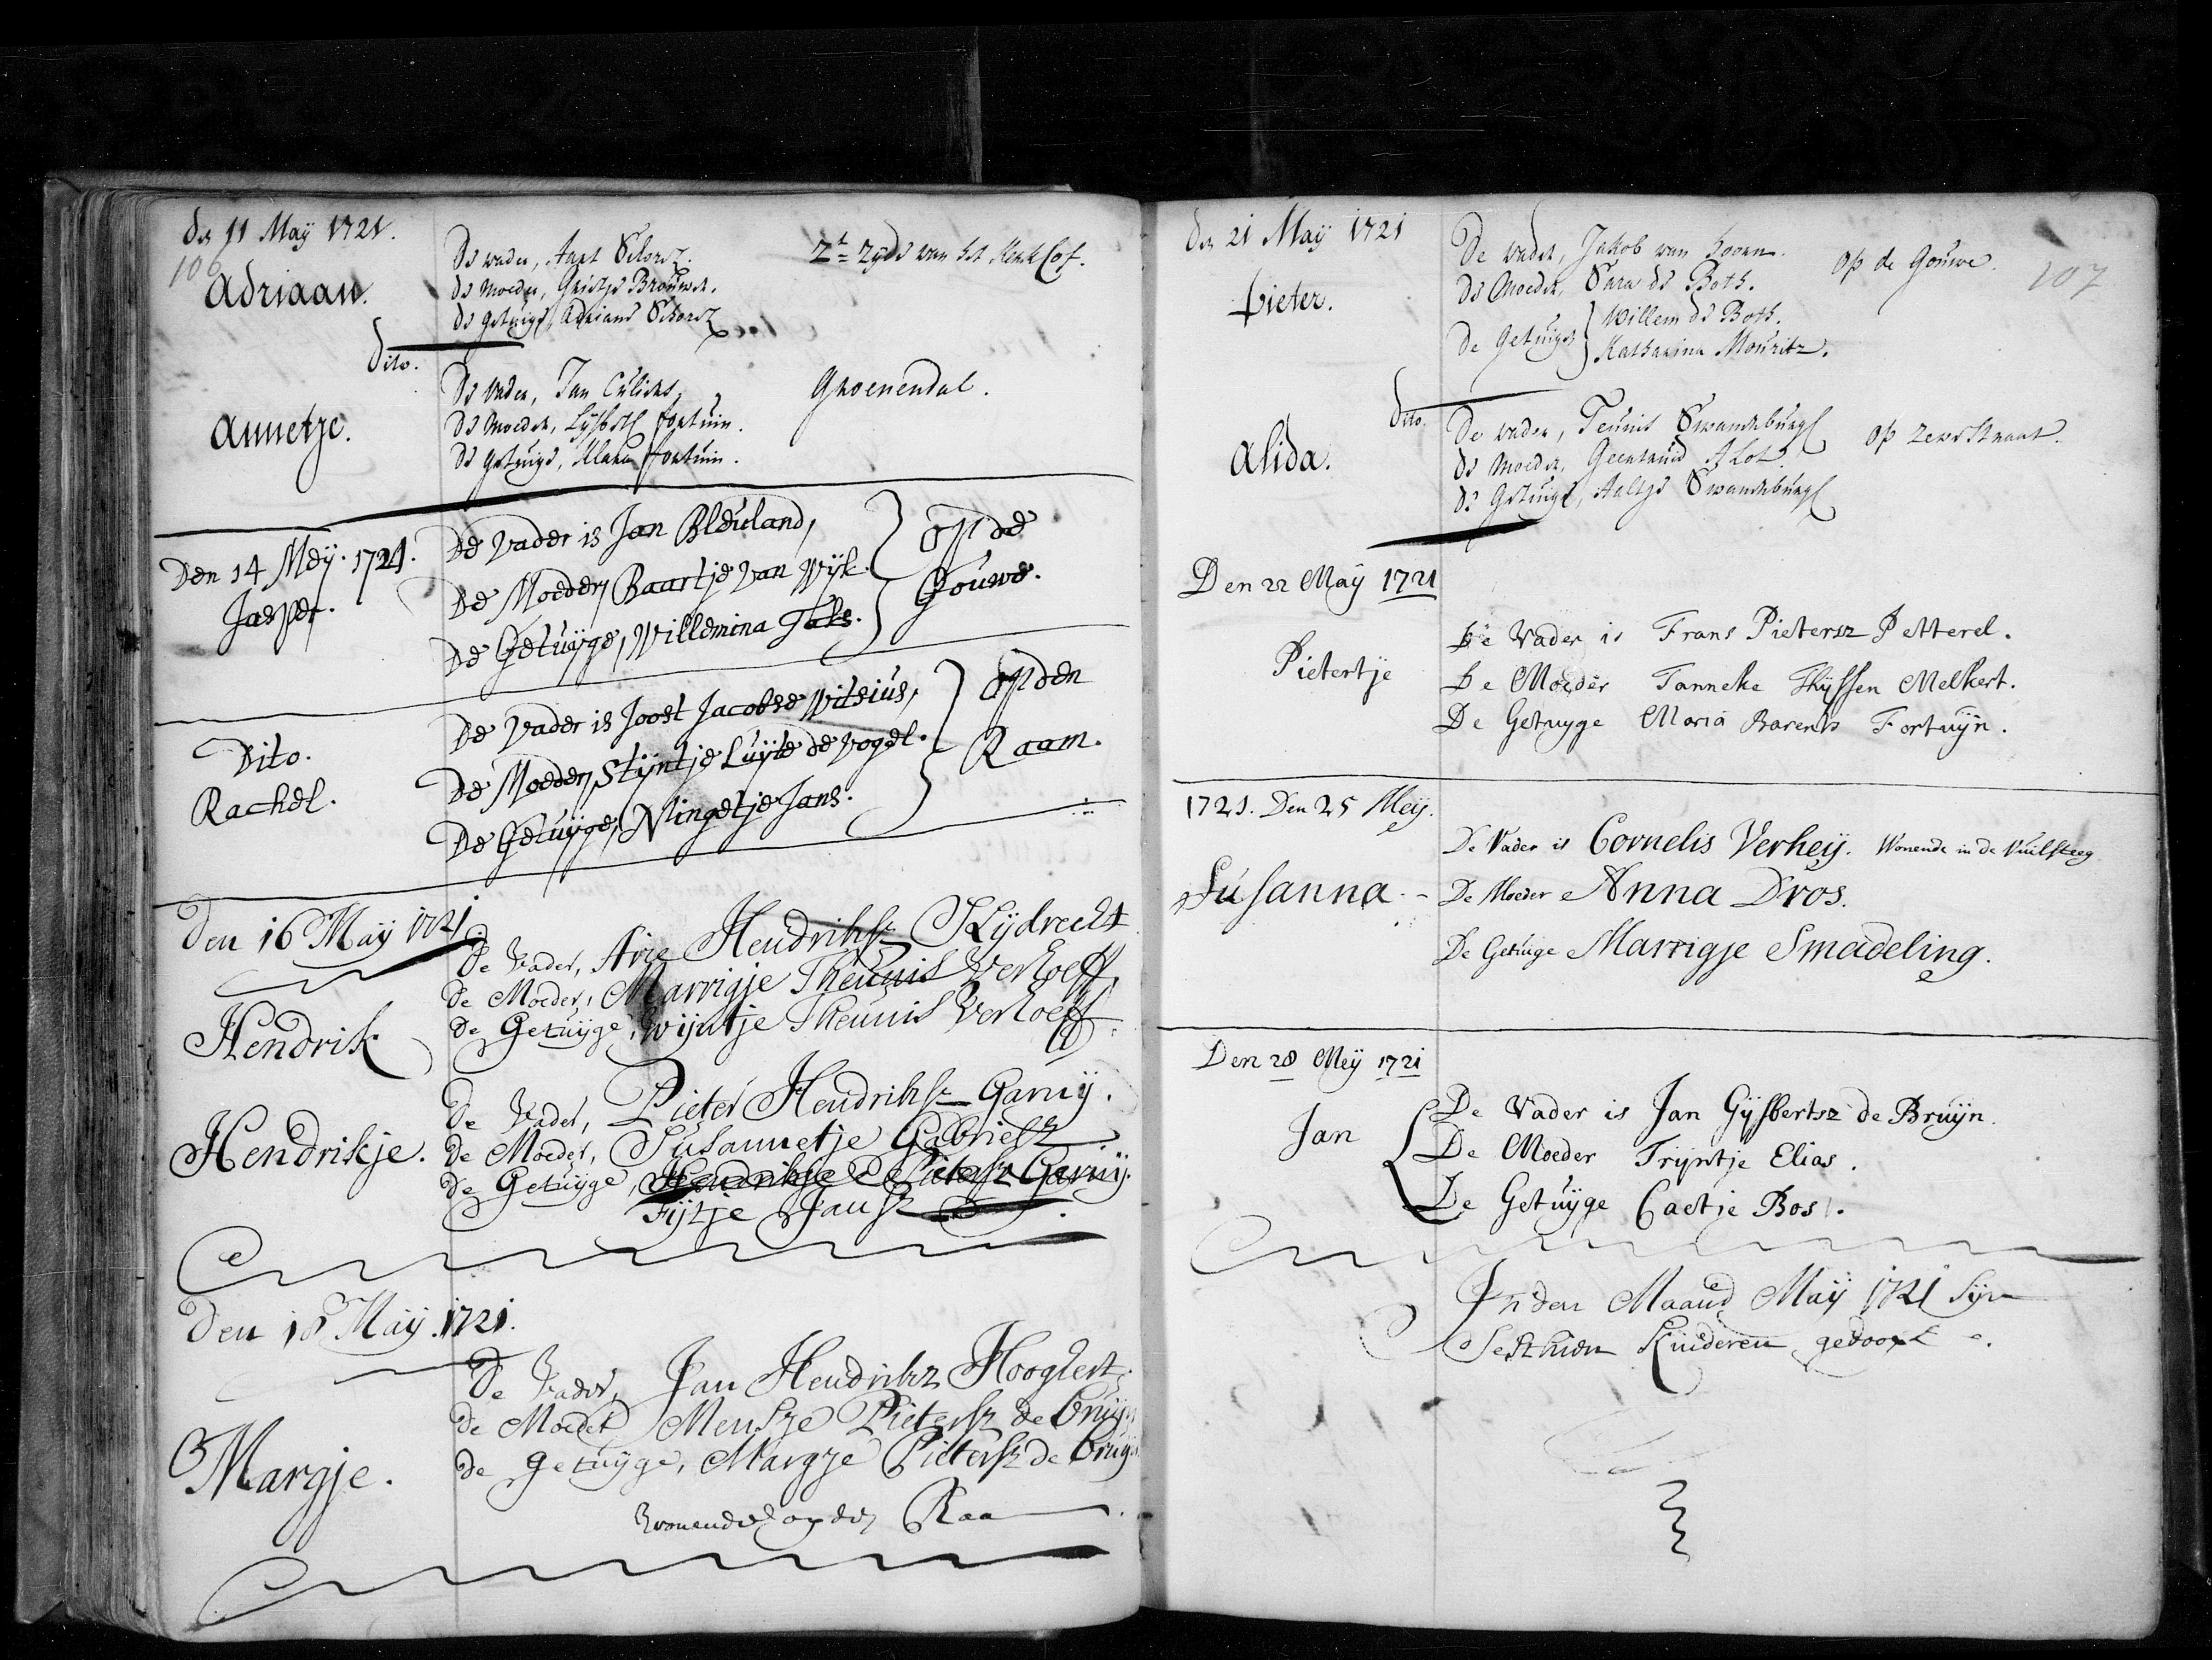 den 11 Maÿ 1721.
106
Adriaan.
De vader, Aart Schorez.
De Moeder, Grietje Brouwer.
De Getuige, Adriana Schorez
Zt zyde van het Kerkhof.
dito.
Annetje.
De vader, Jan
De Moeder, Lysbeth fortuin.
De Getuige, Maria fortuin.
Groenendal.
Den 14 Meÿ. 1721.
Jasper.
De Vader is Jan Bleuland,
De Moeder, Baartje van Wÿk.
De Getuÿge, Willemina Taks.
Op de
Gouwe.
Dito.
Rachel.
De Vader is Joost Jacobse Witsius,
De Moeder, Stÿntje Luÿte de Vogel.
De Getuÿge, Nlingetje Jans.
Op den
Raam.
Den 16 Maÿ 1721.
Hendrik
De Vader, Arie Hendriksz Kydrecht
De Moeder, Marrigje Theunis Verhoeff,
De Getuÿge, Wijntje Theunis Verhoeff.
Hendrikje.
De Vader, Pieter Hendriksz Garnij.
De Moeder, Susannetje Gabrielsz
De Getuÿge, Hendrikje Pietersz Garnij.
Fijtje Jansz
Den 18 Maÿ. 1721.
Margje.
De Vader, Jan Hendriksz Hooglert.
De Moeder Mensje Pietersz de bruÿn
De getuÿge, Margje Pietersz de bruÿn
Wonende op de Raa
den 21 Maÿ 1721
107
Pieter.
De vader, Jakob van hoorn.
De Moeder, Sara de Both.
De Getuigen
Willem de Both.
Katharina Mouritz.
Op de Gouwe.
dito.
Alida.
De vader, Teunis Swanenburgh
De Moeder, Geertruid Slot.
De Getuige, Aaltje Swanenburgh
Op Zewstraat.
Den 22 Maÿ 1721
Pietertje
De Vader is Frans Pietersz Petterel.
De Moeder Tanneke Thÿssen Melkert.
De Getuyge Maria Barents Fortuÿn.
1721. Den 25 Meij.
Susanna.
De Vader is Cornelis Verheij. Wonende in de Vuilsteeg
De Moeder Anna Dros.
De Getuige Marrigje Smadeling.
Den 28 Meÿ 1721
Jan
De Vader is Jan Gÿsbertsz de Bruÿn.
De Moeder Trÿntje Elias.
De Getuÿge Caetje Bos.
In den Maand Maÿ 1721 Sÿn
Sesthien Kinderen gedoopt.